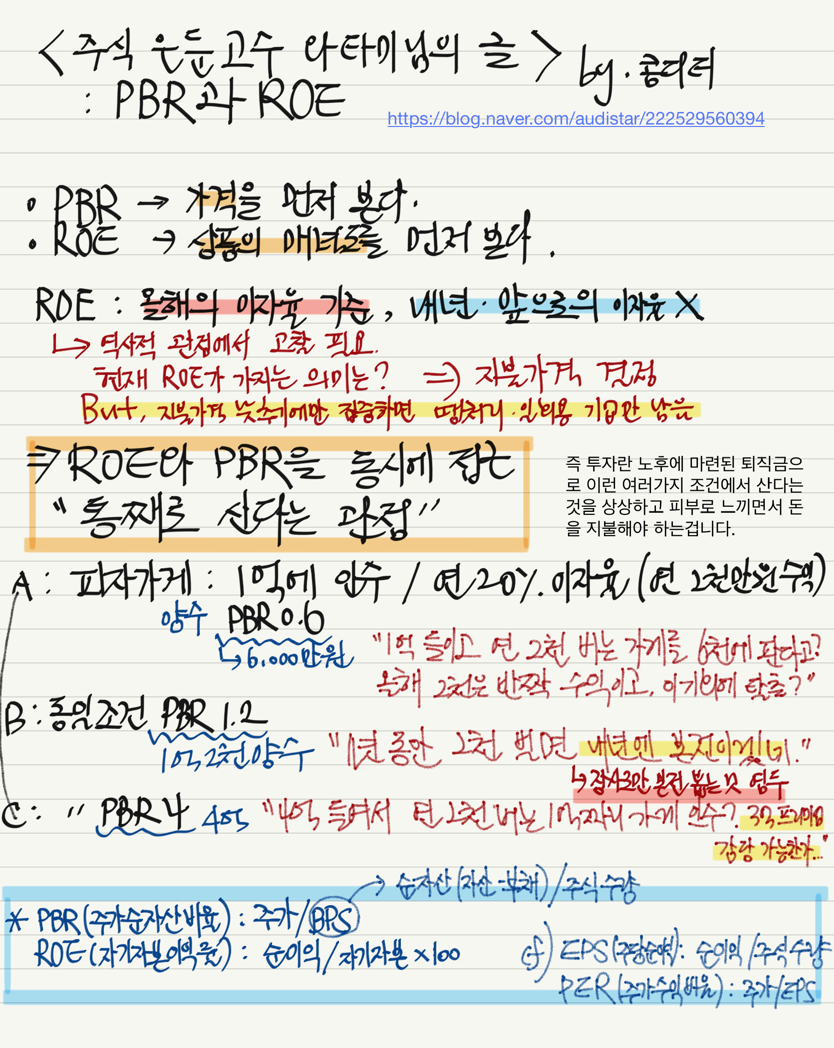 <주식 은둔고수 라타미님의 글> by. 콩디터
: PBR과 ROE
https://blog.naver.com/audistar/222529560394
• PBR → 가격을 먼저 본다.
• ROE → 상품의 매너도를 먼저 본다.
ROE : 올해의 이자율 기준, 내년·앞으로의 이자율 X
↳ 역사적 관점에서 고찰 필요.
현재 ROE가 가지는 의미는? ⇒ 지불가격 결정
But, 지불가격 낮추기에만 집중하면 땡처리· 기업만 남음
⇒ ROE와 PBR을 동시에 접근
"통째로 산다는 관점"
즉 투자란 노후에 마련된 퇴직금으
로 이런 여러가지 조건에서 산다는
것을 상상하고 피부로 느끼면서 돈
을 지불해야 하는겁니다.
A : 피자가게 : 1억에 인수 / 연 20% 이자율 (연 2천만원 수익)
양수 PBR 0.6
↳ 6.000만원
"1억 들이고 연 2천 버는 가게를 6천에 판다고?
올해 2천은 반짝 수익이고, 이기회에 탈출?"
B : 동일조건 PBR 1.2
1억2천양수
"1년 동안 2천 벌면 내년엔 본전이겠네."
↳ 장사로만 본전 뽑는 것 염두
C : " PBR 4 4억
"4억 들여서 연 2천 버는 1억짜리 가게 인수? 3억 프리미엄
감당 가능한가..."
→ 순자산 (자산-부채) / 주식수량
* PBR (주가순자산비율) : 주가/BPS
ROE (자기자본이익률) : 순이익/자기자본 ×100
cf) EPS (주당순이익) : 순이익/주식수량
PER (주가수익비율) : 주가/EPS